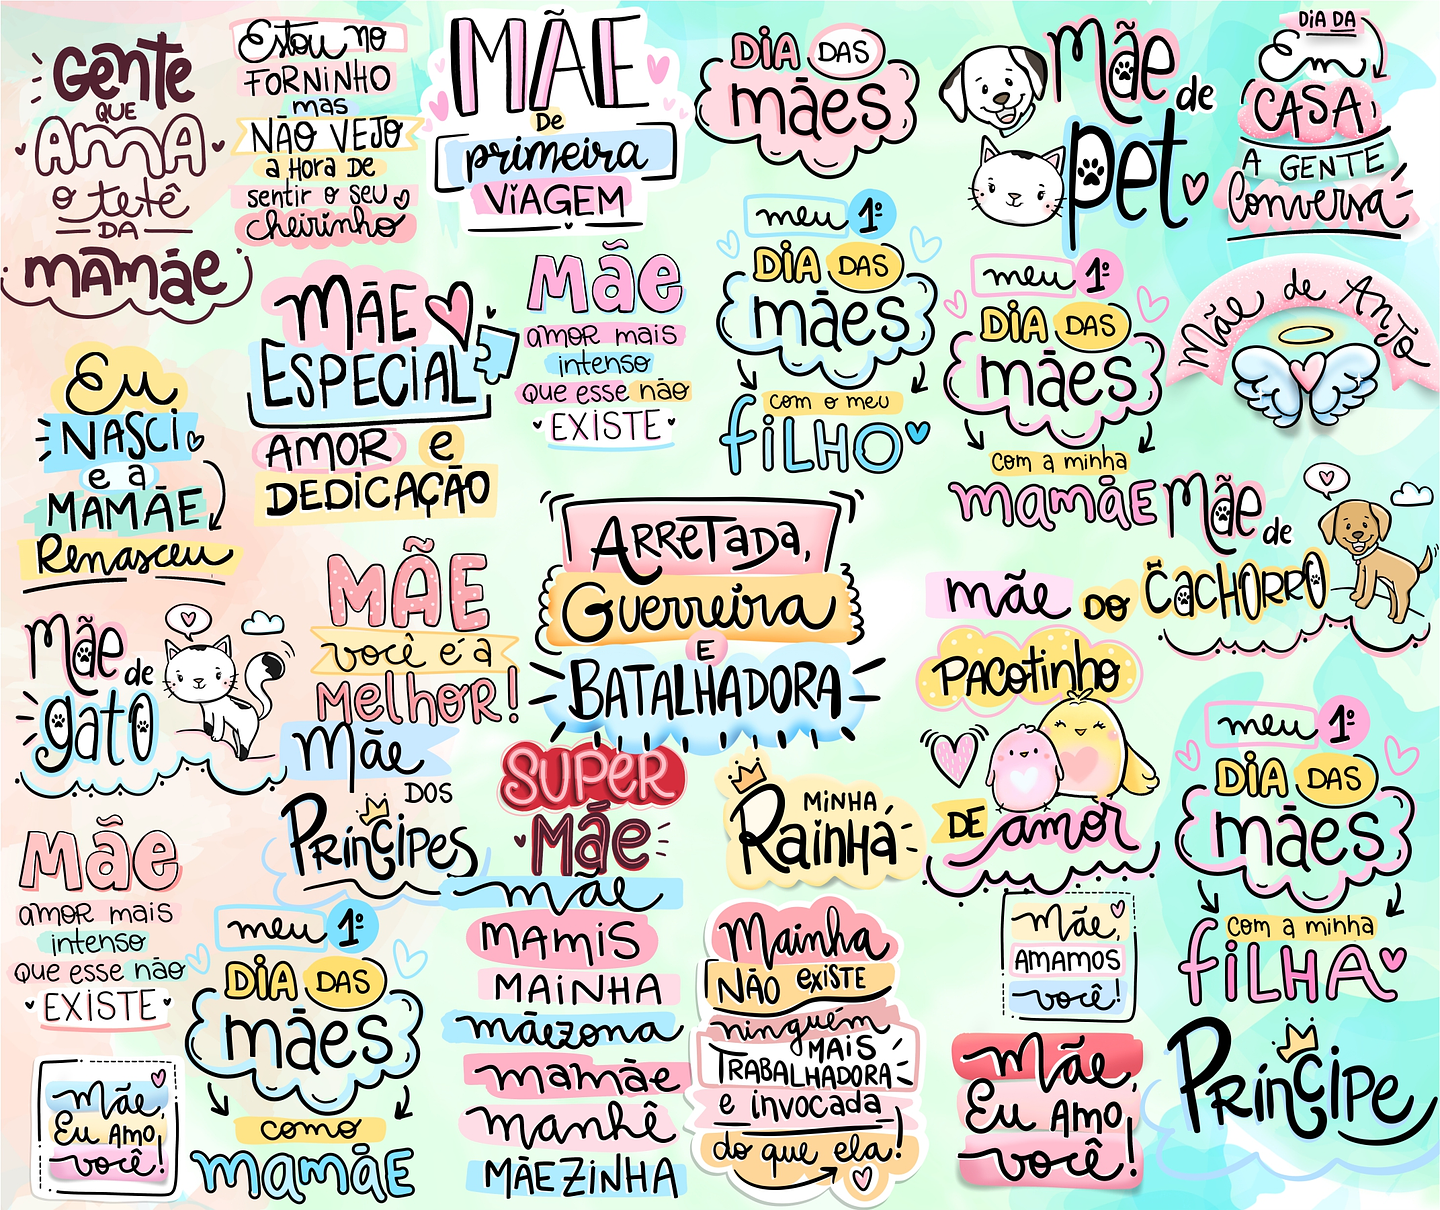 Gente
QUE
AMA
o tetê
DA
mamãe
Estou no
FORNINHO
mas
NÃO VEJO
a HORA DE
sentir o seu
cheirinho
MÃE
De
primeira
VIAGEM
DIA DAS
mães
Mãe de
pet
DIA DA
Em
CASA
A GENTE
Conversa
MÃE
ESPECIAL
AMOR e
DEDICAÇÃO
Mãe
amor mais
intenso
que esse não
EXISTE
meu 1º
DIA DAS
mães
com o meu
FILHO
meu 1º
DIA DAS
mães
com a minha
mamãe
Mãe de Anjo
Eu
NASCI
e a
MAMÃE
Renasceu
MÃE
você é a
Melhor!
Arretada,
Guerreira
E
BATALHADORA
Mãe de
CACHORRO
mãe do
PACotinho
DE amor
Mãe de
gato
Mãe
DOS
Príncipes
SUPER
Mãe
MINHA
Rainha
meu 1º
DIA DAS
mães
com a minha
FILHA
Mãe
amor mais
intenso
que esse não
EXISTE
meu 1º
DIA DAS
mães
como
mamãe
mãe
mamis
MAINHA
mãezona
mamãe
manhê
MÃEZINHA
Mainha
NÃO existe
ninguém
MAIS
TRABALHADORA
e invocada
do que ela!
Mãe,
AMAMOS
você!
Mãe,
Eu Amo
você!
Mãe,
Eu Amo
você!
Príncipe